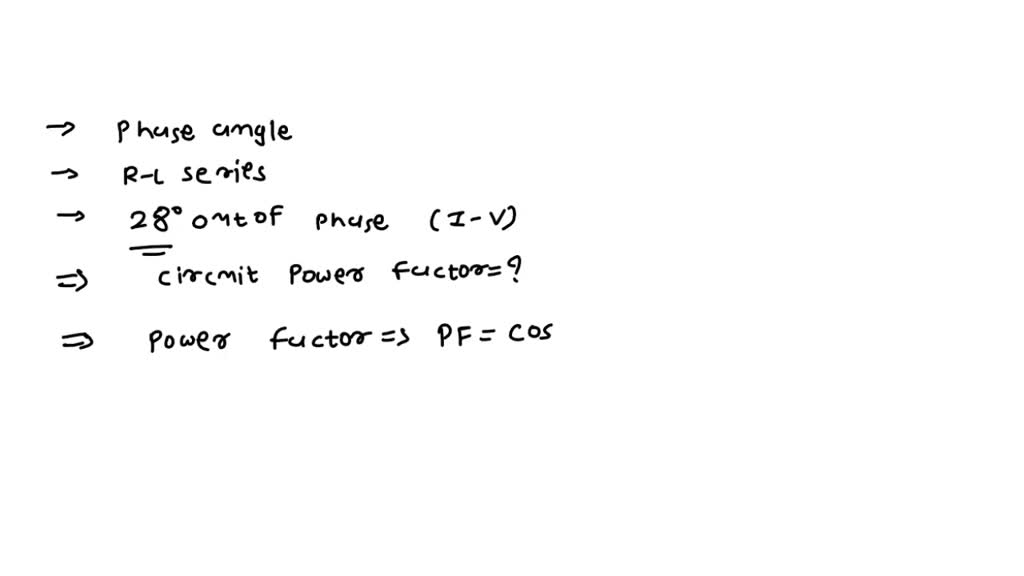 → Phase angle
→ R-L series
→ 28° out of phase (I-V)
⇒ circuit Power factor=?
⇒ Power factor ⇒ PF = cos